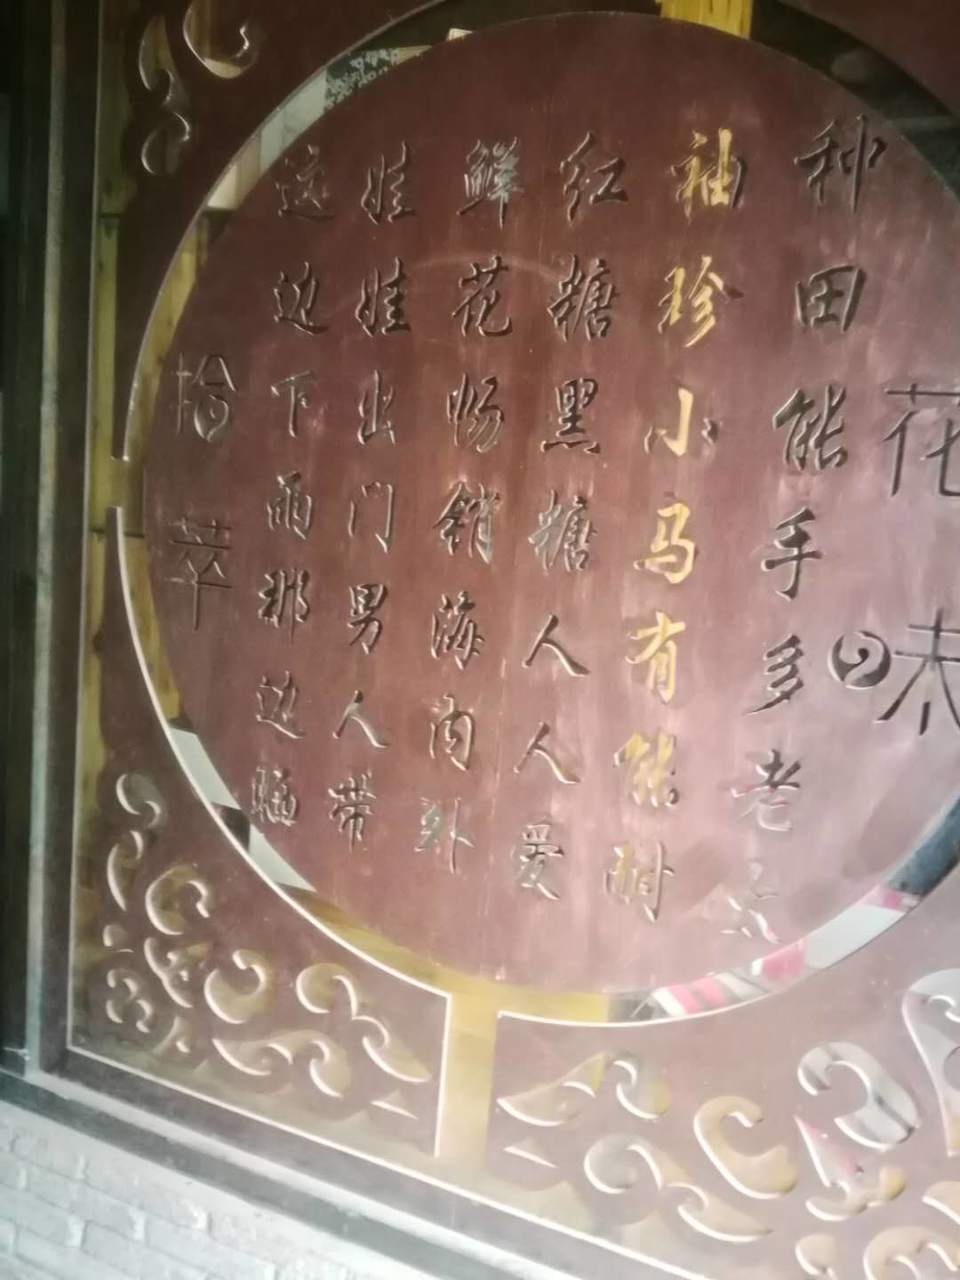 花味
种田能手多老太
袖珍小马有能耐
红糖黑糖人人爱
鲜花畅销海内外
娃娃出门男人带
这边下雨那边晒
拾萃